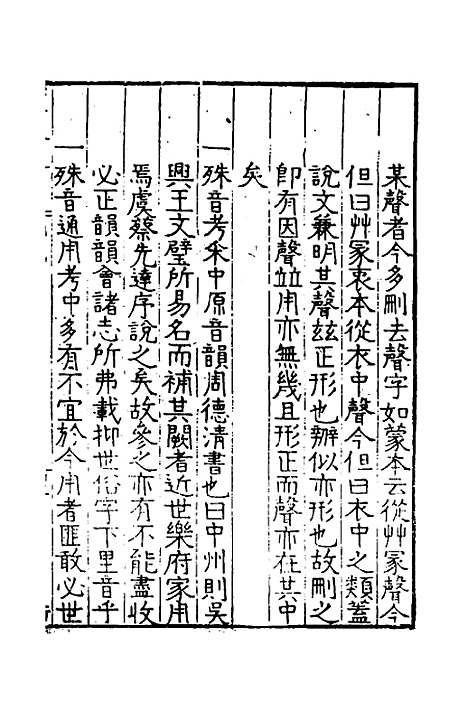 某聲者今多刪去聲字如蒙本云從艸冡聲今
但曰艸冡衷本從衣中聲今但曰衣中之類蓋
說文兼明其聲茲正形也辧似亦形也故刪之
卽有因聲竝用亦無幾且形正而聲亦在其中
矣
一殊音考采中原音韻周德清書也曰中州則吳
興王文璧所易名而補其闕者近世樂府家用
焉虞蔡先達序說之矣故參之亦有不能盡收
必正韻韻會諸志所弗載抑世俗字下里音乎
一殊音通用考中多有不宜於今用者匪敢必世